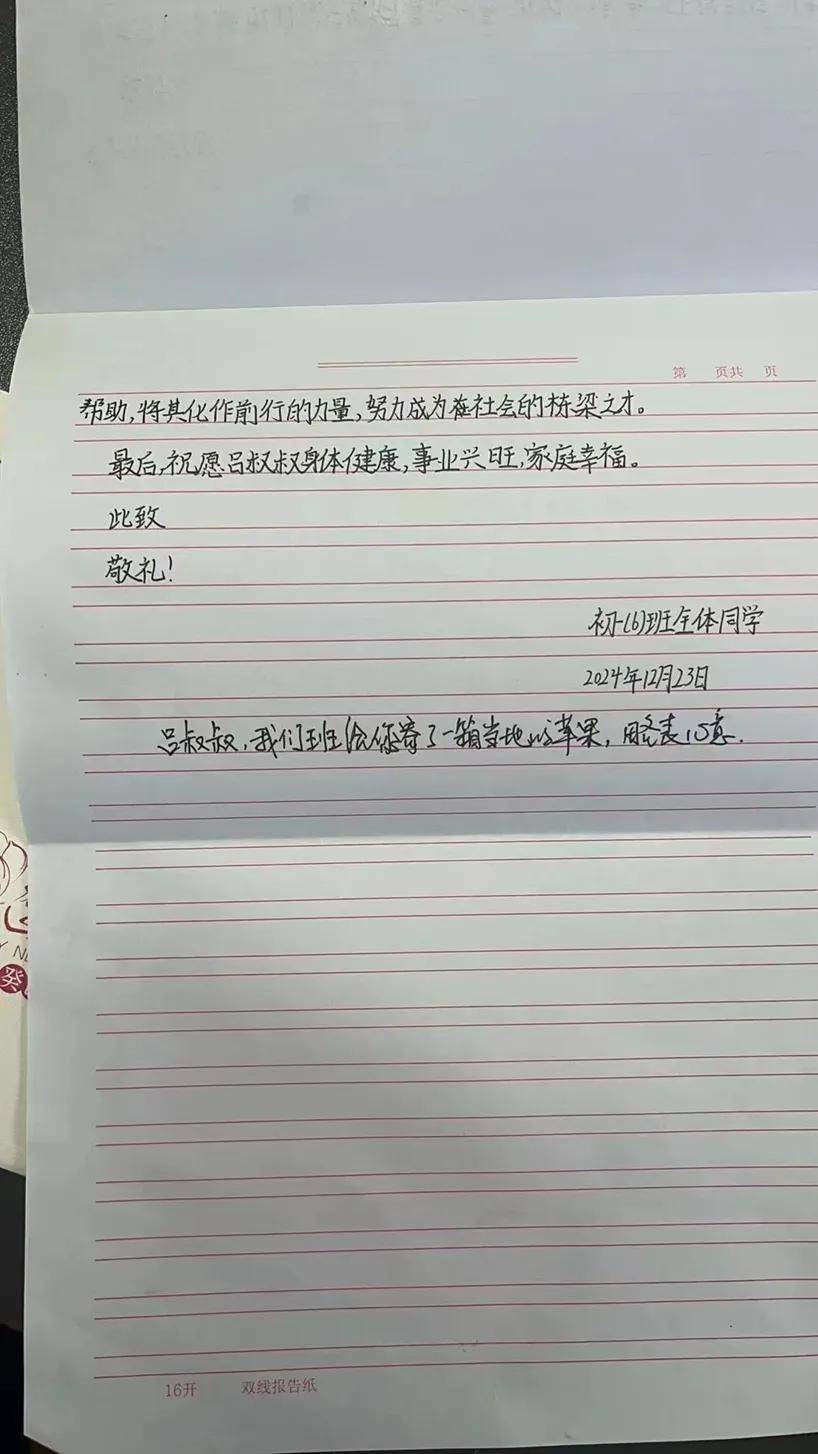 第 页共 页
帮助,将其化作前行的力量,努力成为在社会的栋梁之才。
最后,祝愿吕叔叔身体健康,事业兴旺,家庭幸福。
此致
敬礼!
初一(6)班全体同学
2024年12月23日
吕叔叔,我们班给您寄了一箱当地的苹果,略表心意.
癸
16开 双线报告纸